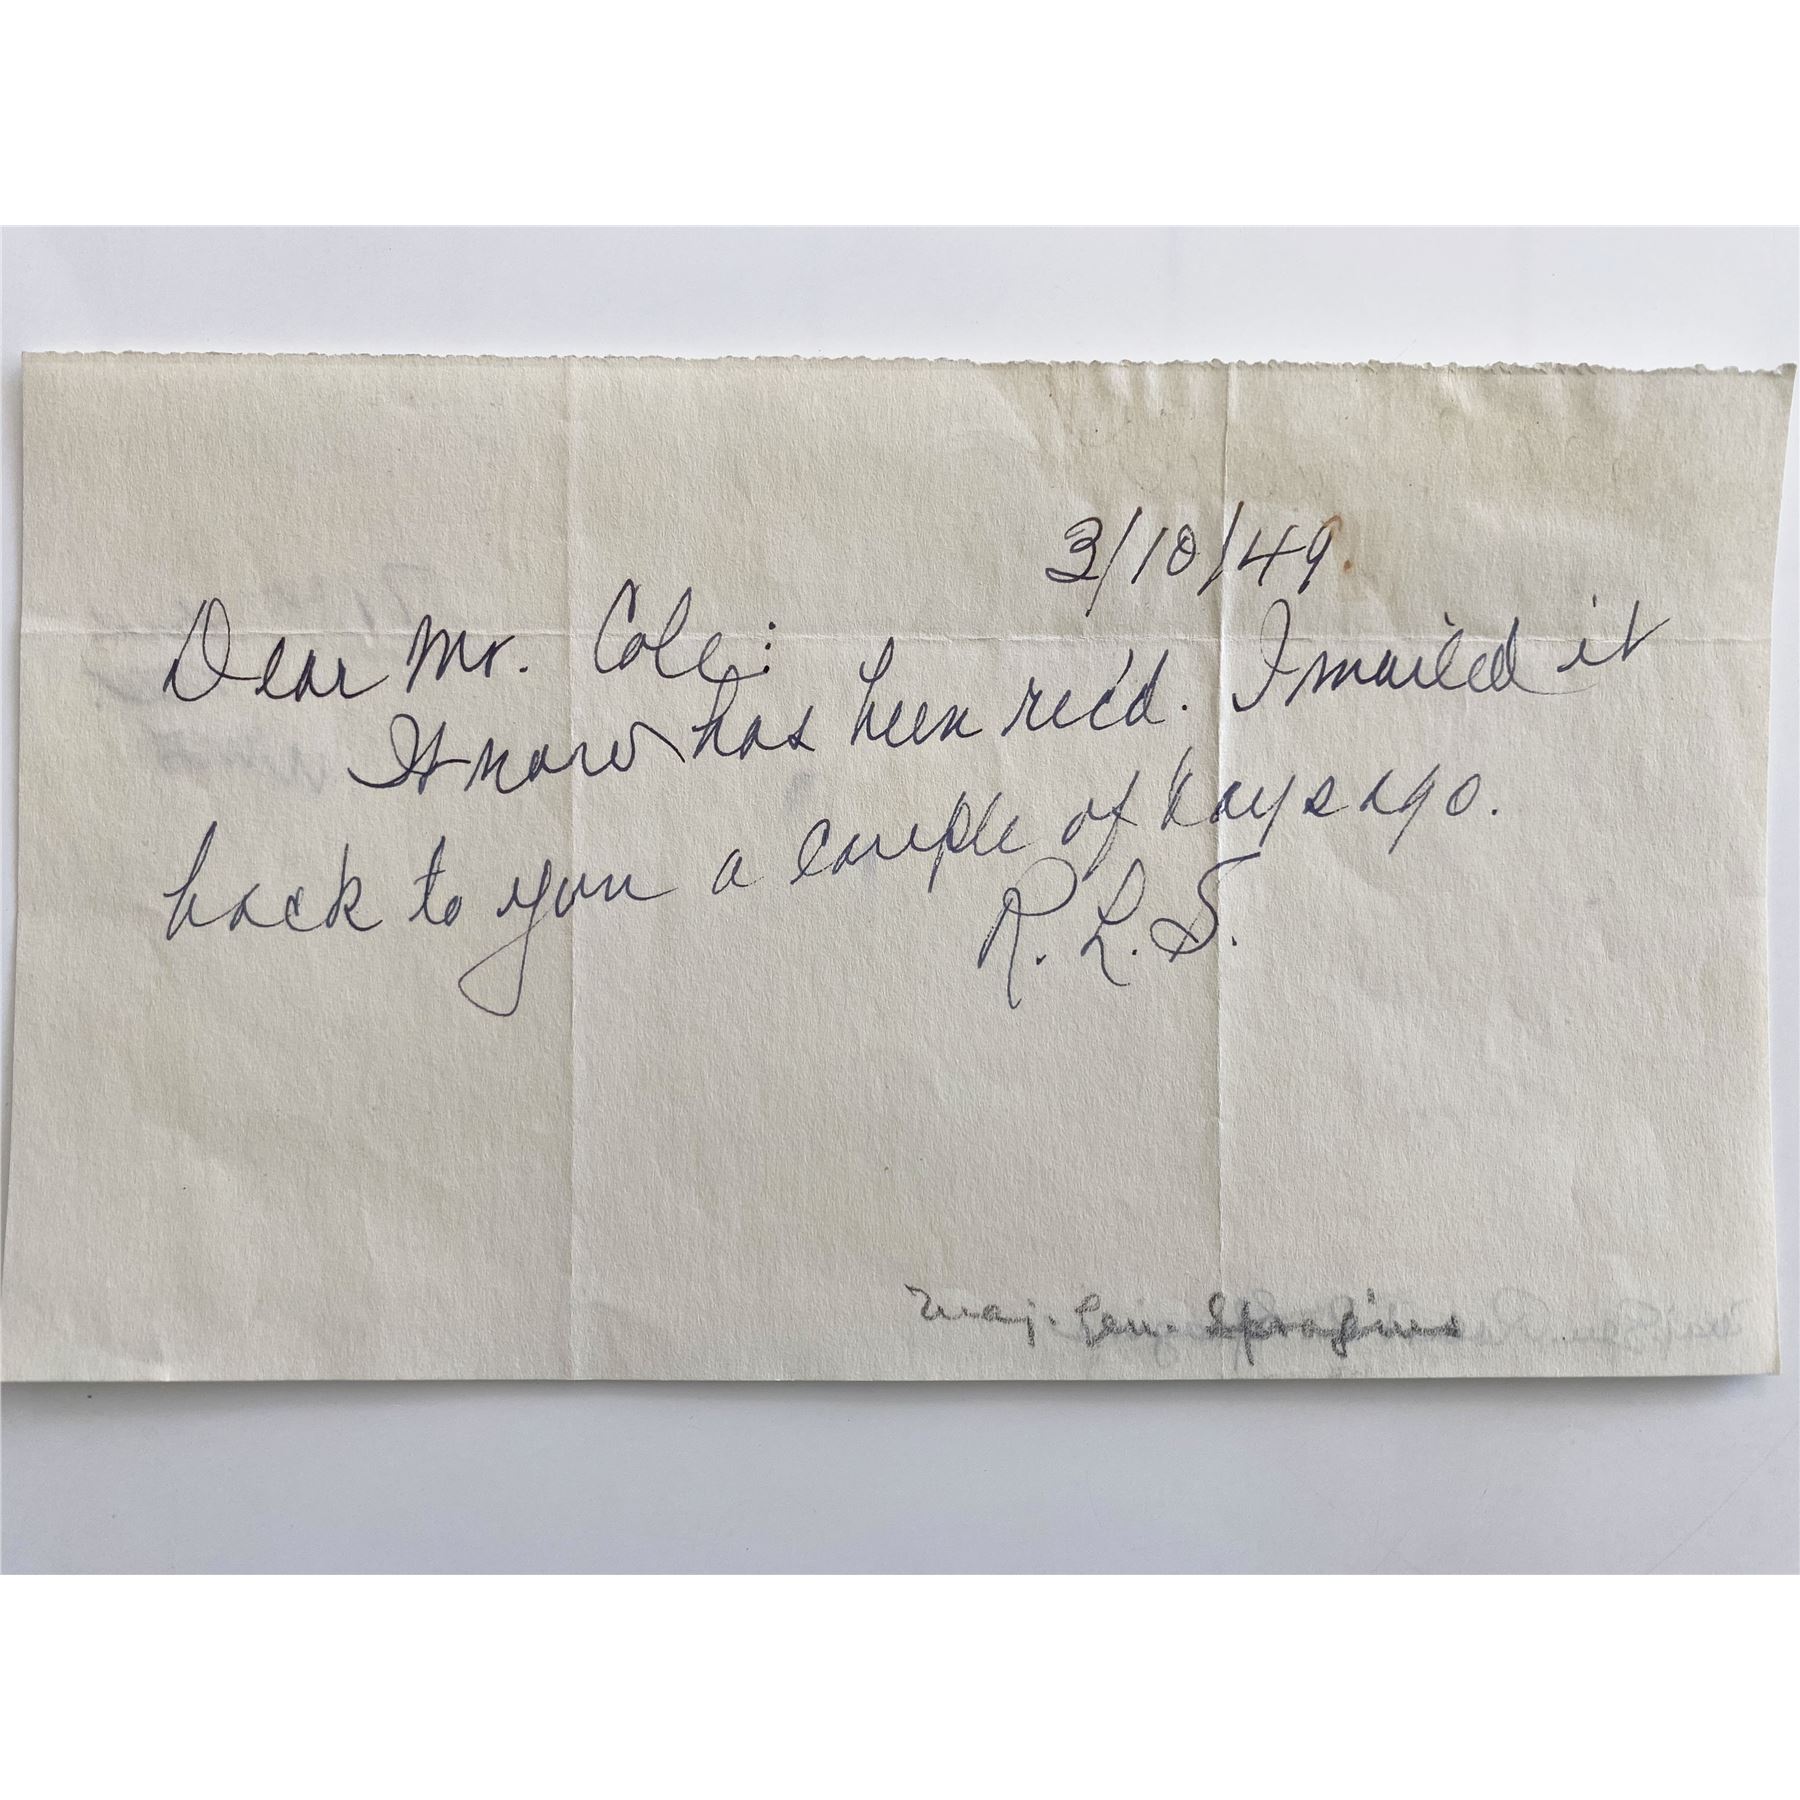 3/10/49.
Dear Mr. Cole:
It now has been rec'd. I mailed it
back to you a couple of days ago.
R. L. S.
Maj. Gen. Spragins